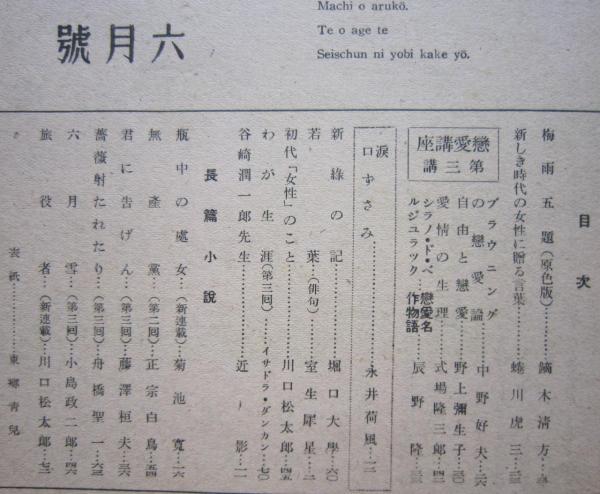 Machi o arukō.
Te o age te
Seischun ni yobi kake yō.
六月號
目次
梅雨五題(原色版)…鏑木清方…
新しき時代の女性に贈る言葉…蜷川虎三…三
戀愛講座
第三講
ブラウニングの戀愛論…中野好夫…六
自由と戀愛…野上彌生子…三〇
愛情の生理…式場隆三郎…四
戀愛名作物語
シラノ・ド・ベルジユラツク…辰野隆…三
涙
口ずさみ…永井荷風…三
新綠の記…堀口大學…六〇
若葉…(俳句)…室生犀星…二
初代「女性」のこと…川口松太郎…四五
わが生涯(第三回)…イサドラ・ダンカン…七〇
谷崎潤一郎先生…近影…一
長篇小說
瓶中の處女…(新連載)…菊池寬…一六
無產黨…(第二回)…正宗白鳥…五四
君に告げん…(第三回)…藤澤桓夫…三六
薔薇射たれたり…(第二回)…舟橋聖一…六三
六月雪…(第二回)…小島政二郎…四六
旅役者…(新連載)…川口松太郎…七三
表紙…東鄕靑兒